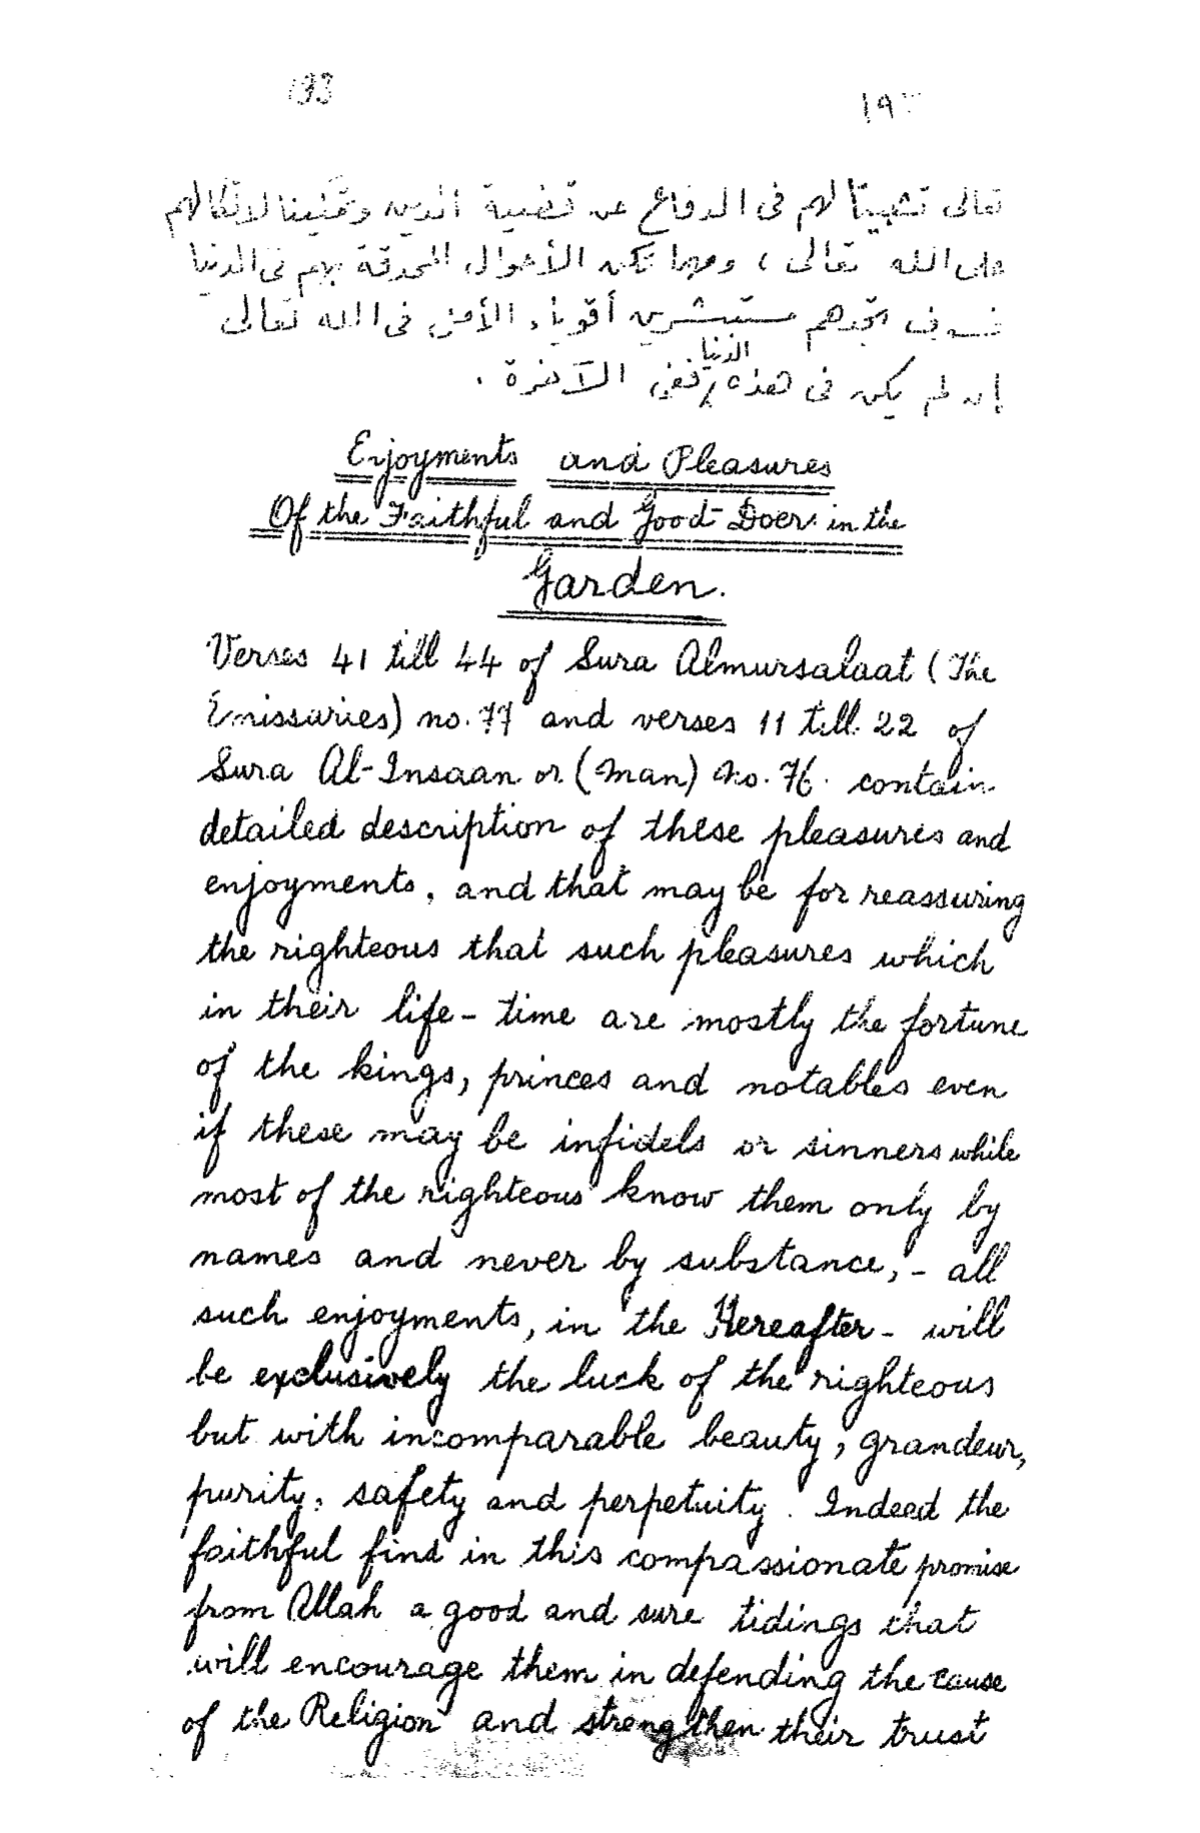 193
١٩٣
تعالى تثبيتا لهم فى الدفاع عن قضية الدين وتمكينا لاتكالهم
على الله تعالى ، ومهما تكن الأحوال المحدقة بهم فى الدنيا
فسوف تجدهم مستبشرين أقوياء الأمل فى الله تعالى
إن لم يكن فى هذه الدنيا ففى الآخرة .
Enjoyments and Pleasures
Of the Faithful and Good-Doers in the
Garden.
Verses 41 till 44 of Sura Almursalaat (The
Emissaries) no. 77 and verses 11 till 22 of
Sura Al-Insaan or (Man) No. 76. contain
detailed description of these pleasures and
enjoyments, and that may be for reassuring
the righteous that such pleasures which
in their life-time are mostly the fortune
of the kings, princes and notables even
if these may be infidels or sinners while
most of the righteous know them only by
names and never by substance, - all
such enjoyments, in the Hereafter - will
be exclusively the luck of the righteous
but with incomparable beauty, grandeur,
purity, safety and perpetuity. Indeed the
faithful find in this compassionate promise
from Allah a good and sure tidings that
will encourage them in defending the cause
of the Religion and strengthen their trust